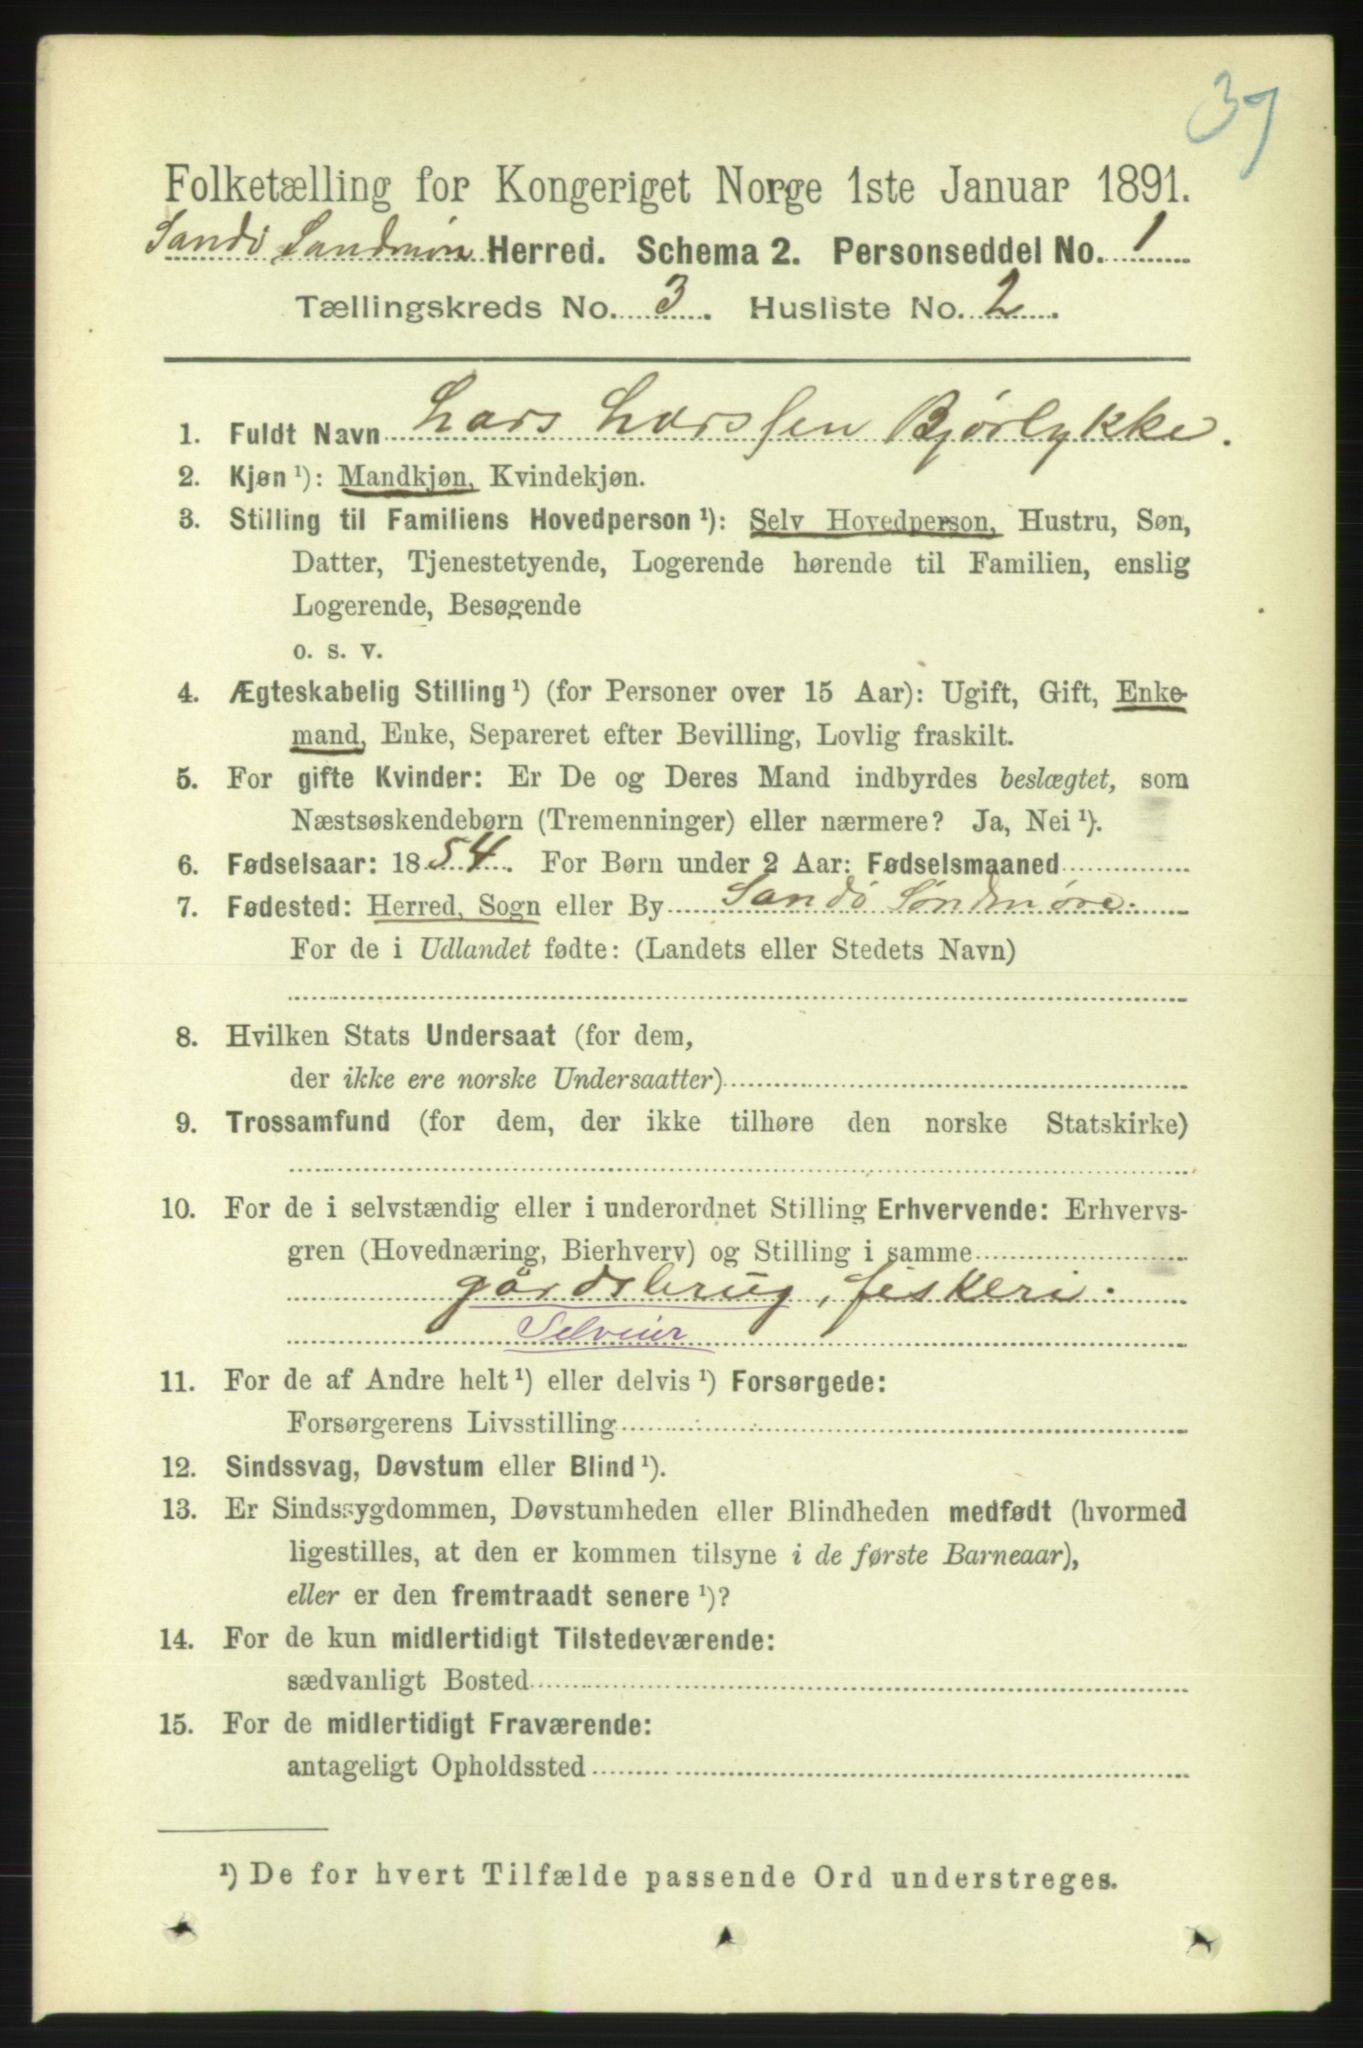 37
Folketælling for Kongeriget Norge 1ste Januar 1891.
Sandø Søndmøre Herred. Schema 2. Personseddel No. 1
Tællingskreds No. 3. Husliste No. 2.
1. Fuldt Navn Lars Larssen Bjørlykke.
2. Kjøn ¹): Mandkjøn, Kvindekjøn.
3. Stilling til Familiens Hovedperson ¹): Selv Hovedperson, Hustru, Søn,
Datter, Tjenestetyende, Logerende hørende til Familien, enslig
Logerende, Besøgende
o. s. v.
4. Ægteskabelig Stilling ¹) (for Personer over 15 Aar): Ugift, Gift, Enke-
mand, Enke, Separeret efter Bevilling, Lovlig fraskilt.
5. For gifte Kvinder: Er De og Deres Mand indbyrdes beslægtet, som
Næstsøskendebørn (Tremenninger) eller nærmere? Ja, Nei ¹).
6. Fødselsaar: 1854. For Børn under 2 Aar: Fødselsmaaned
7. Fødested: Herred, Sogn eller By Sandö Söndmøre.
For de i Udlandet fødte: (Landets eller Stedets Navn)
8. Hvilken Stats Undersaat (for dem,
der ikke ere norske Undersaatter)
9. Trossamfund (for dem, der ikke tilhøre den norske Statskirke)
10. For de i selvstændig eller i underordnet Stilling Erhvervende: Erhvervs-
gren (Hovednæring, Bierhverv) og Stilling i samme
gårdsbrug, fiskeri.
Selveier
11. For de af Andre helt ¹) eller delvis ¹) Forsørgede:
Forsørgerens Livsstilling
12. Sindssvag, Døvstum eller Blind ¹).
13. Er Sindssygdommen, Døvstumheden eller Blindheden medfødt (hvormed
ligestilles, at den er kommen tilsyne i de første Barneaar),
eller er den fremtraadt senere ¹)?
14. For de kun midlertidigt Tilstedeværende:
sædvanligt Bosted
15. For de midlertidigt Fraværende:
antageligt Opholdssted
¹) De for hvert Tilfælde passende Ord understreges.